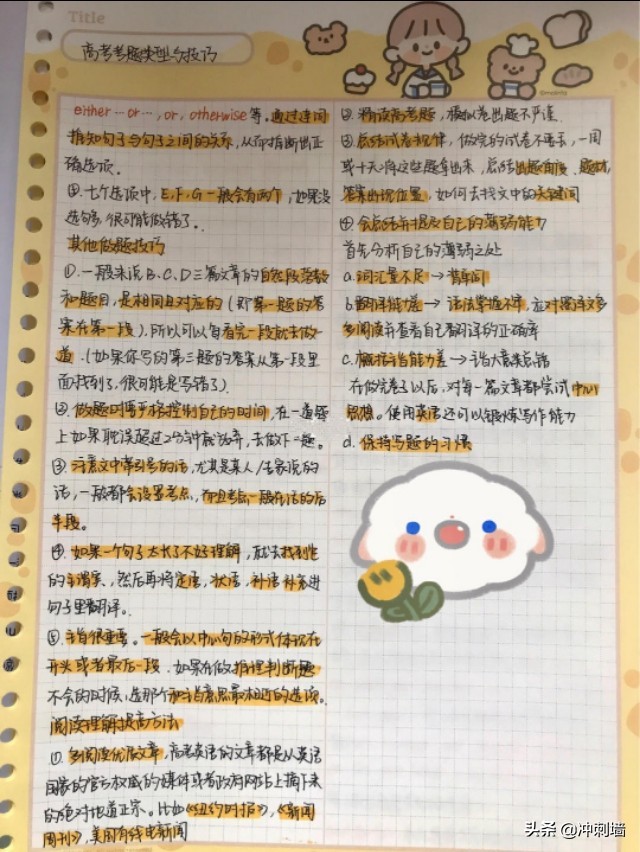 Title
高考考题类型与技巧
either…or…, or, otherwise 等。通过连词
推知句子与句子之间的关系,从而推断出正
确选项。
④.七个选项中,E,F,G一般会有两个,如果没
选够多,很可能做错了。
其他做题技巧
①.一般来说B.C.D三篇文章的自然段落数
和题目,是相同且对应的(即第一题的答
案在第一段),所以可以每看完一段就去做一
道.(如果你写的第三题的答案从第一段里
面找到了,很可能是写错了)
②.做题时要严格控制自己的时间,在一道题
上如果耽误超过2分钟就放弃,去做下一题。
③.注意文中带引号的话,尤其是某人/专家说的
话,一般都会设置考点,而且考点一般在话的后
半段。
④.如果一个句子太长了不好理解,就去找到它
的主谓宾,然后再将定语,状语,补语补充进
句子里翻译。
⑤.主旨很重要。一般会以中心句的形式体现在
开头或者最后一段.如果在做推理判断题
不会的时候,选那个和主旨意思最相近的选项。
阅读理解提高方法
①.多阅读优质文章,高考英语的文章都是从英语
国家的官方权威的媒体或者政府网站上摘下来
的绝对地道正宗。比如《纽约时报》,《新闻
周刊》,美国有线电新闻
②.精读高考题,模拟卷出题不严谨.
③.总结试卷规律,做完的试卷不要丢,一周
或十天将这些题拿出来,总结出题角度、题材,
答案出现位置,如何去找文中的关键词
④会总结并提及自己的薄弱能力
首先分析自己的薄弱之处
a.词汇量不足→背单词
b.翻译能力差→语法掌握不牢,应对照译文多
多阅读并查看自己翻译的正确率
c.概括主旨能力差→主旨大意类总错
在做完卷子以后,对每一篇文章都尝试中心
思想。使用英语还可以锻炼写作能力
d.保持写题的习惯
头条 @冲刺墙